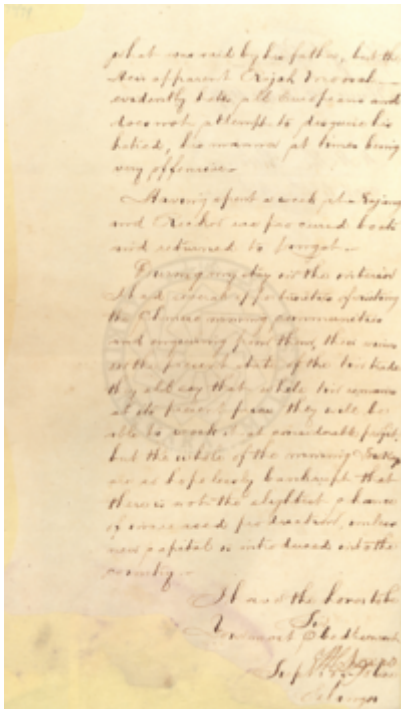 what was said by his father, but the
heir apparent Rajah
evidently hates all Europeans and
does not attempt to disguise his
hatred, his manner at times being
very offensive.
Having spent a week at
and we procured boats
and returned to
During my stay in the interior
I had several opportunities of visiting
the Chinese mining communities
and enquiring from them, their views
on the present state of the tin trade
they all say that while tin remains
at its present price they will be
able to work it at considerable profit,
but the whole of the mining
are so hopelessly bankrupt that
there is not the slightest chance
of increased production, unless
new capital is introduced into the
country.
I have the honor to be
Sir
Your most Obedt servant
Selangor